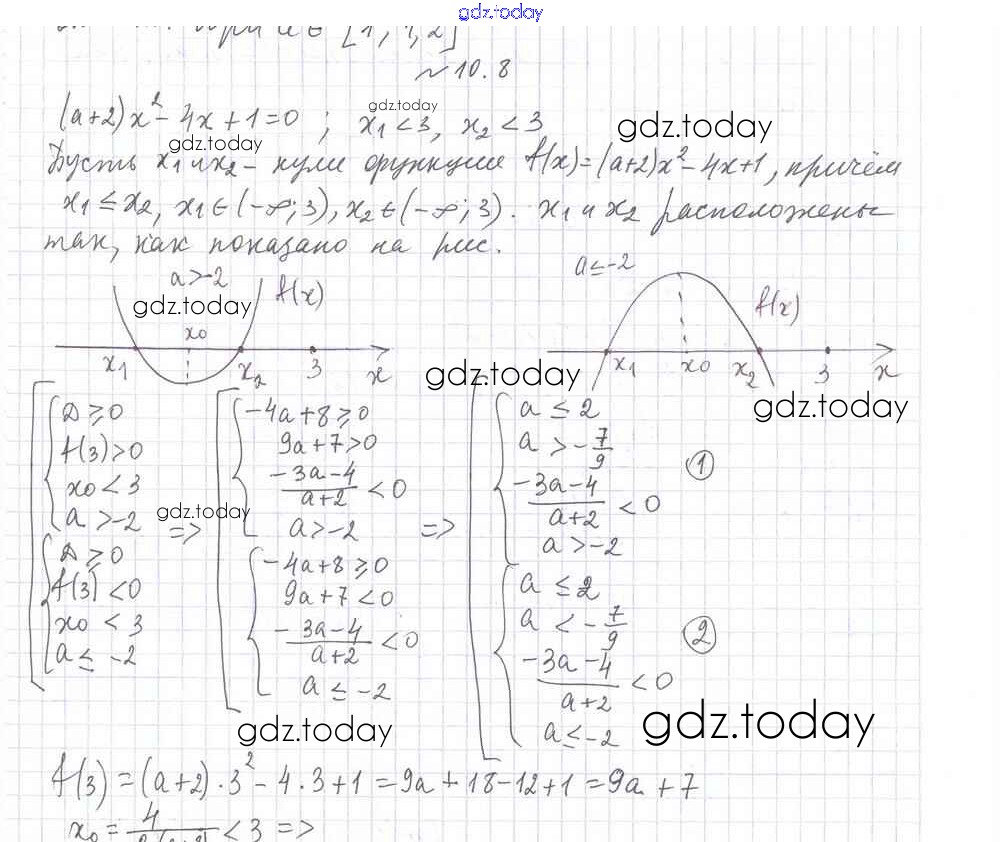 gdz.today
при a ∈ [1; 1,2]
~10.8
(a+2)x²-4x+1=0 ; x₁<3, x₂<3
gdz.today
gdz.today
gdz.today
Пусть x₁ и x₂ - нули функции f(x)=(a+2)x²-4x+1, причём
x₁≤x₂, x₁∈(-∞;3), x₂∈(-∞;3). x₁ и x₂ расположены
так, как показано на рис.
a>-2
f(x)
gdz.today
x₀
x₁
x₂
3
x
a≤-2
f(x)
x₁
x₀
x₂
3
x
gdz.today
gdz.today
D≥0
f(3)>0
x₀<3
a>-2
D≥0
f(3)<0
x₀<3
a≤-2
gdz.today
=>
-4a+8≥0
9a+7>0
(-3a-4)/(a+2)<0
a>-2
-4a+8≥0
9a+7<0
(-3a-4)/(a+2)<0
a≤-2
=>
a≤2
a>-7/9
(-3a-4)/(a+2)<0
a>-2
1
a≤2
a<-7/9
(-3a-4)/(a+2)<0
a≤-2
2
gdz.today
gdz.today
f(3)=(a+2)·3²-4·3+1=9a+18-12+1=9a+7
x₀=4/ <3 =>